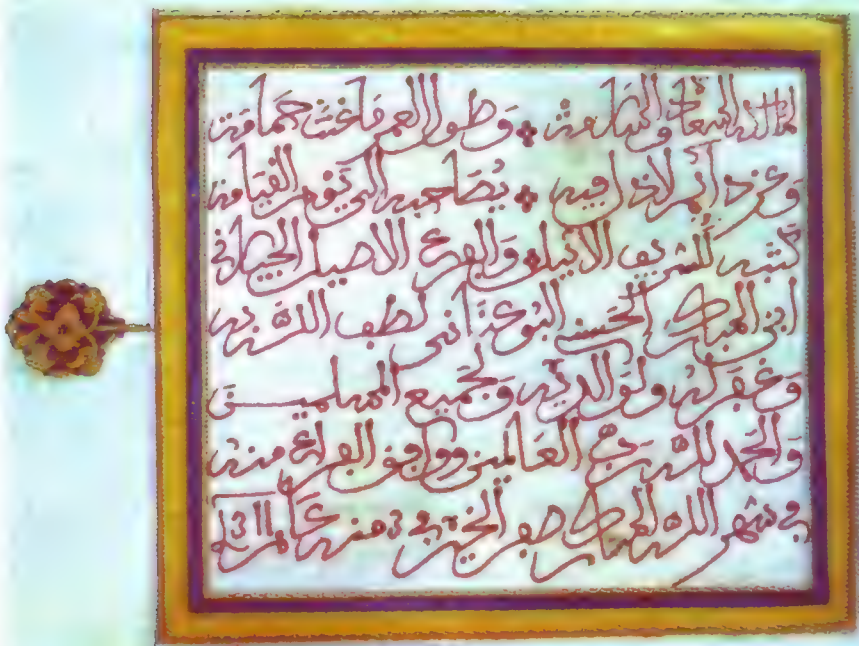 لمالكه السعادة والسلامة وطول العمر ما غنت حمامة
وعز دائم لا ذل فيه يصاحبه الى يوم القيامة
كتبه الشريف الاثيل والفرع الاصيل
ابن المبارك الحسن البوعناني لطف الله به
وغفر له ولوالديه ولجميع المسلمين
والحمد لله رب العالمين ووافق الفراغ منه
في شهر الله المبارك صفر الخير في منه عام